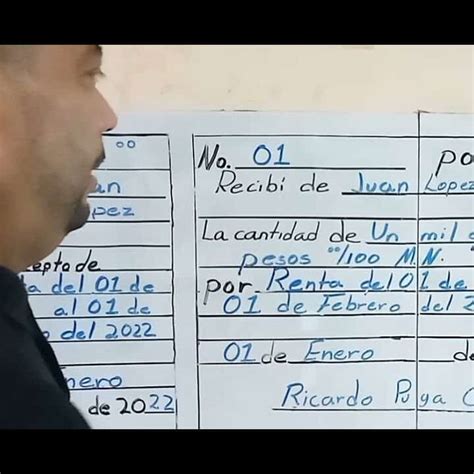 oo
an
pez
epto de
a del 01 de
al 01 de
o del 2022
nero
de 2022
No. 01 po
Recibí de Juan Lopez
La cantidad de Un mil
pesos 00/100 M.N.
por Renta del 01 de
01 de Febrero del 2
01 de Enero de
Ricardo Puga